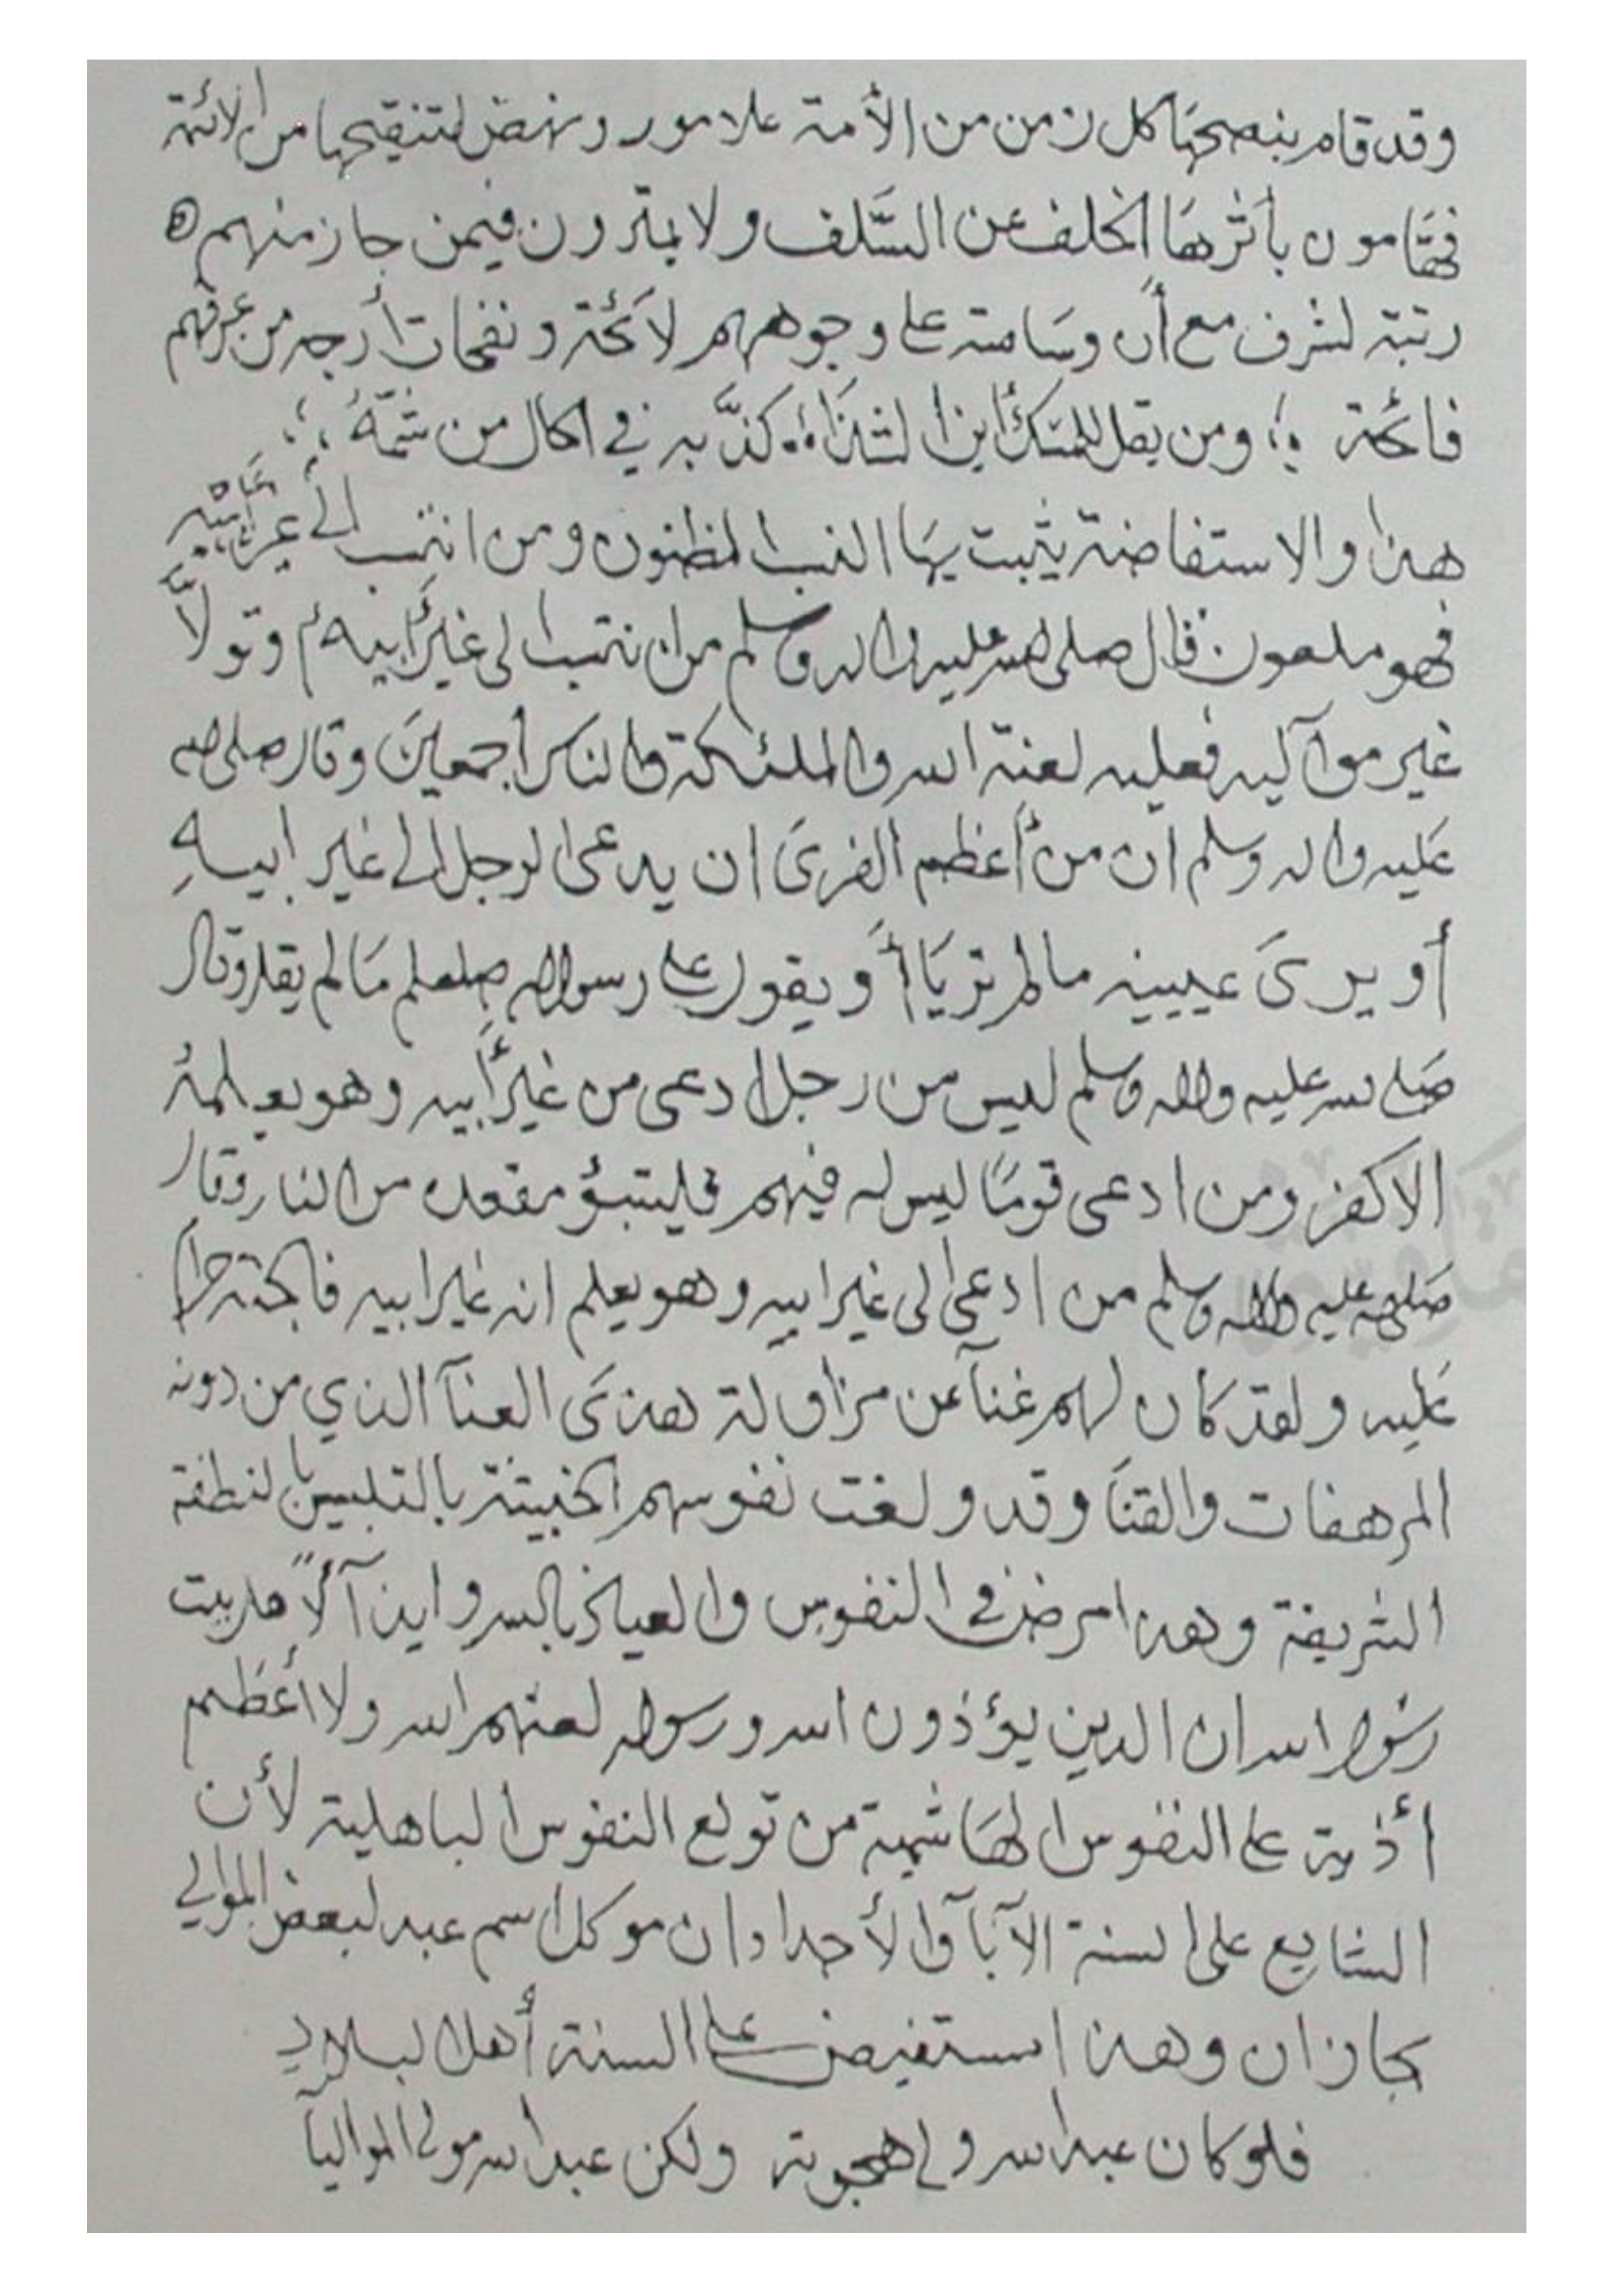 وقد قام بنصحها كل زمن من الأمة علامور ونهض لتنقيحها من الائمة
فهامون يأثرها الخلف عن السلف ولا يمترون فيمن حاز منهم
رتبة لشرف مع أن وسامته على وجوههم لائحة ونفحات أرجه من عرفهم
فائحة ومن يقل للمسك أين الشذاء كذبه في الحال من شمه
هذا والاستفاضة يثبت بها النسب المظنون ومن انتسب الى غير أبيه
فهو ملعون قال صلى الله عليه واله وسلم من انتسب الى غير أبيه وتولا
غير مواليه فعليه لعنة الله والملئكة والناس اجمعين وقال صلى الله
عليه واله وسلم ان من أعظم الفرى ان يدعى الرجل الى غير ابيه
أو يرى عينيه مالم تريا أو يقول على رسول الله صلعلم مالم يقل وقال
صلى الله عليه واله وسلم ليس من رجل ادعى من غير أبيه وهو يعلمه
الا كفر ومن ادعى قوما ليس له فيهم فليتبؤ مقعده من النار وقال
صلى الله عليه واله وسلم من ادعى الى غير ابيه وهو يعلم انه غير ابيه فالجنة حرام
عليه ولقد كان لهم غنآ عن مزاولة هذى العنآ الذي من دونه
المرهفات والقنا وقد ولغت نفوسهم الخبيثة بالتلبيس بالنطفة
الشريفة وهذا مرض في النفوس والعياذ بالله وايذآ لآل بيت
رسول الله ان الذين يؤذون الله ورسوله لعنهم الله ولا أعظم
أذية على النفوس الهاشمية من تولع النفوس الباهلية لأن
الشايع على السنة الآبآ والأجداد ان موكل اسم عبد لبعض الموالي
بجازان وهذا مستفيض على السنة أهل البلاد
فلو كان عبد الله ولى هجوته ولكن عبد الله مولى المواليآ